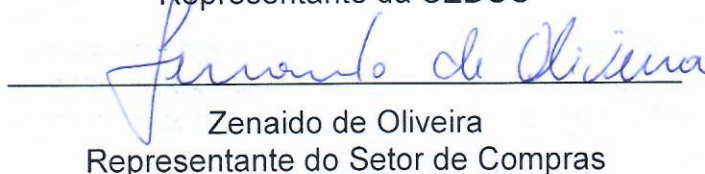 Representante da CEDOC
Fernando de Oliveira
Zenaido de Oliveira
Representante do Setor de Compras